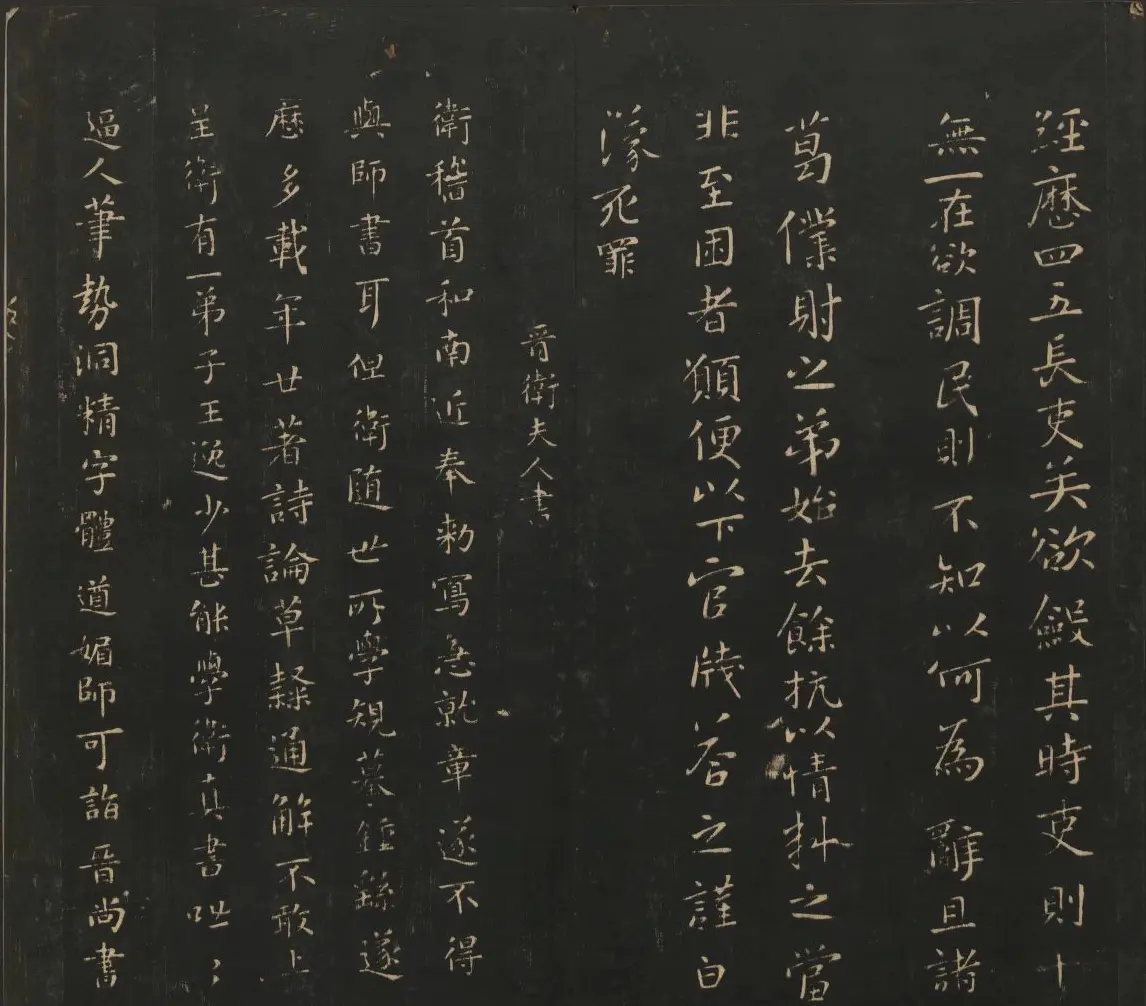 經歷四五長吏美欲斂其時吏則十
無一在欲調民則不知以何為辭且諸
葛僕射之弟始去餘抗以情料之當
非至困者願便以下官牋荅之謹白
濛死罪
晉衛夫人書
衛稽首和南近奉勅寫急就章遂不得
與師書耳但衛隨世所學規摹鍾繇遂
歷多載年廿著詩論草隸通解不敢上
呈衛有一弟子王逸少甚能學衛真書咄〻
逼人筆勢洞精字體遒媚師可詣晉尚書